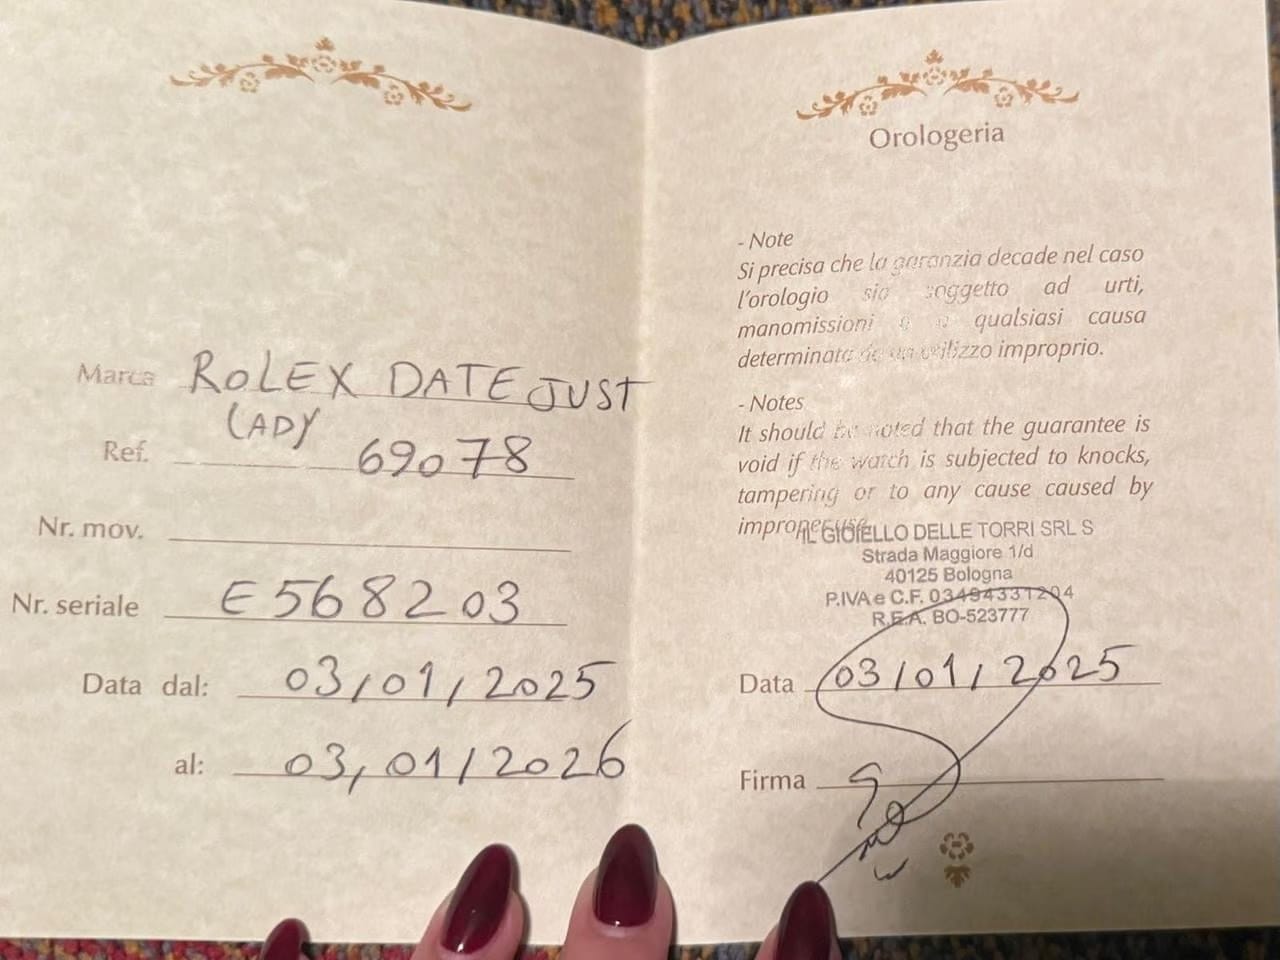 Marca ROLEX DATEJUST
LADY
Ref. 69078
Nr. mov.
Nr. seriale E568203
Data dal: 03/01/2025
al: 03/01/2026
Orologeria
- Note
Si precisa che la garanzia decade nel caso
l'orologio sia soggetto ad urti,
manomissioni o a qualsiasi causa
determinata da un utilizzo improprio.
- Notes
It should be noted that the guarantee is
void if the watch is subjected to knocks,
tampering or to any cause caused by
improper use.
IL GIOIELLO DELLE TORRI SRL S
Strada Maggiore 1/d
40125 Bologna
P.IVA e C.F. 03494331204
R.E.A. BO-523777
Data 03/01/2025
Firma